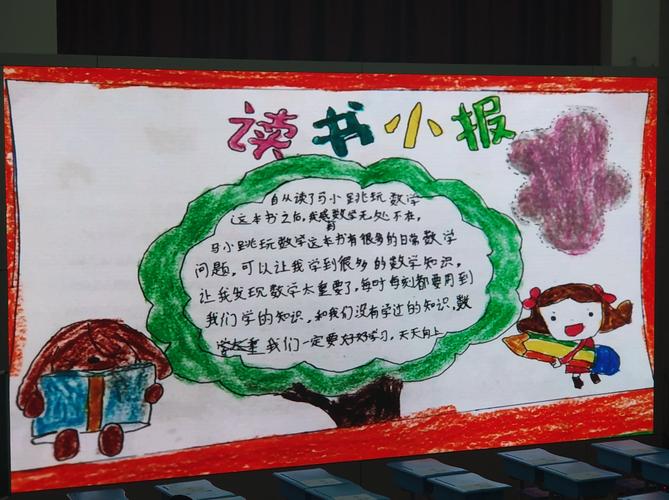 读书小报
自从读了马小跳玩数学
这本书之后,我感数学无处不在,
马小跳玩数学这本书有很多的日常数学
问题,可以让我学到很多的数学知识。
让我发现数学太重要了,每时每刻都要用到
我们学的知识,和我们没有学过的知识,数
我们一定要好好学习,天天向上